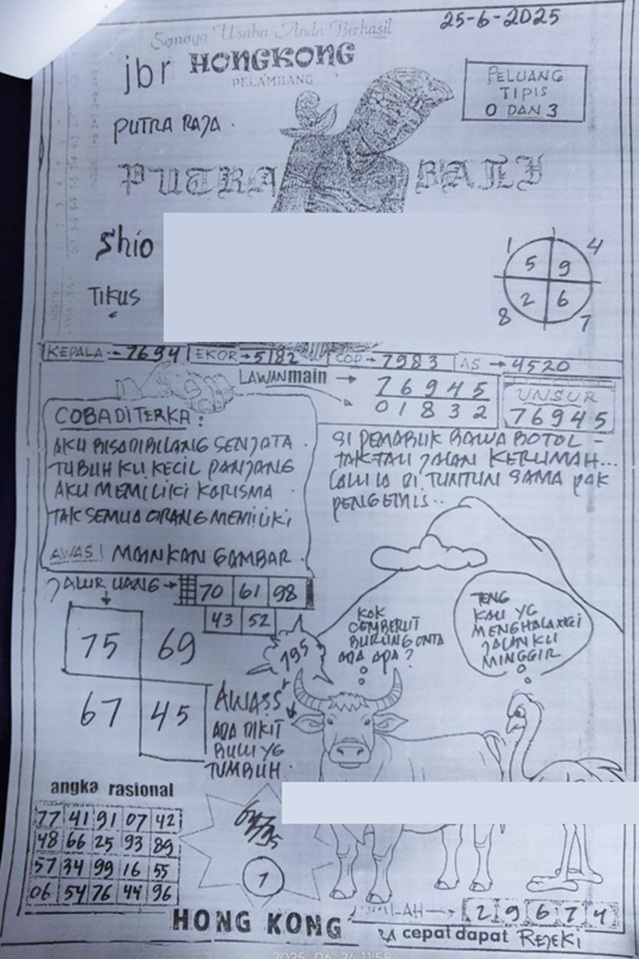 25-6-2025
Semoga Usaha Anda Berhasil
jbr HONGKONG
PELAMBANG
PELUANG
TIPIS
0 DAN 3
PUTRA RAJA.
PUTRA BALI
Shio
TIKUS
1 4
5 9
2 6
8 7
KEPALA → 7694 EKOR → 5182 COP → 7983 AS → 4520
LAWAN main → 76945
01832
UNSUR
76945
COBA DITERKA:
AKU BISA DIBILANG SENJATA
TUBUH KU KECIL PANJANG
AKU MEMILIKI KARISMA
TAK SEMUA ORANG MEMILIKI
AWAS! MAINKAN GAMBAR.
SI PEMABUK BAWA BOTOL -
TAK TAU JALAN KERUMAH...
LALU IA DI TUNTUN SAMA PAK
PENGEMIS..
JALUR UANG → 70 61 98
43 52
75 69
67 45
195
AWASS
ADA DIKIT
BULU YG
TUMBUH.
KOK
CEMBERUT
BURUNG ONTA
ADA APA?
TENG
KAU YG
MENGHALANGI
JALAN KU
MINGGIR
angka rasional
77 41 91 07 42
48 66 25 93 89
57 34 99 16 55
06 54 76 44 96
1
HONG KONG
JUMLAH → 2 9 6 7 4
cepat dapat REJEKI
2025-06-24 11:58